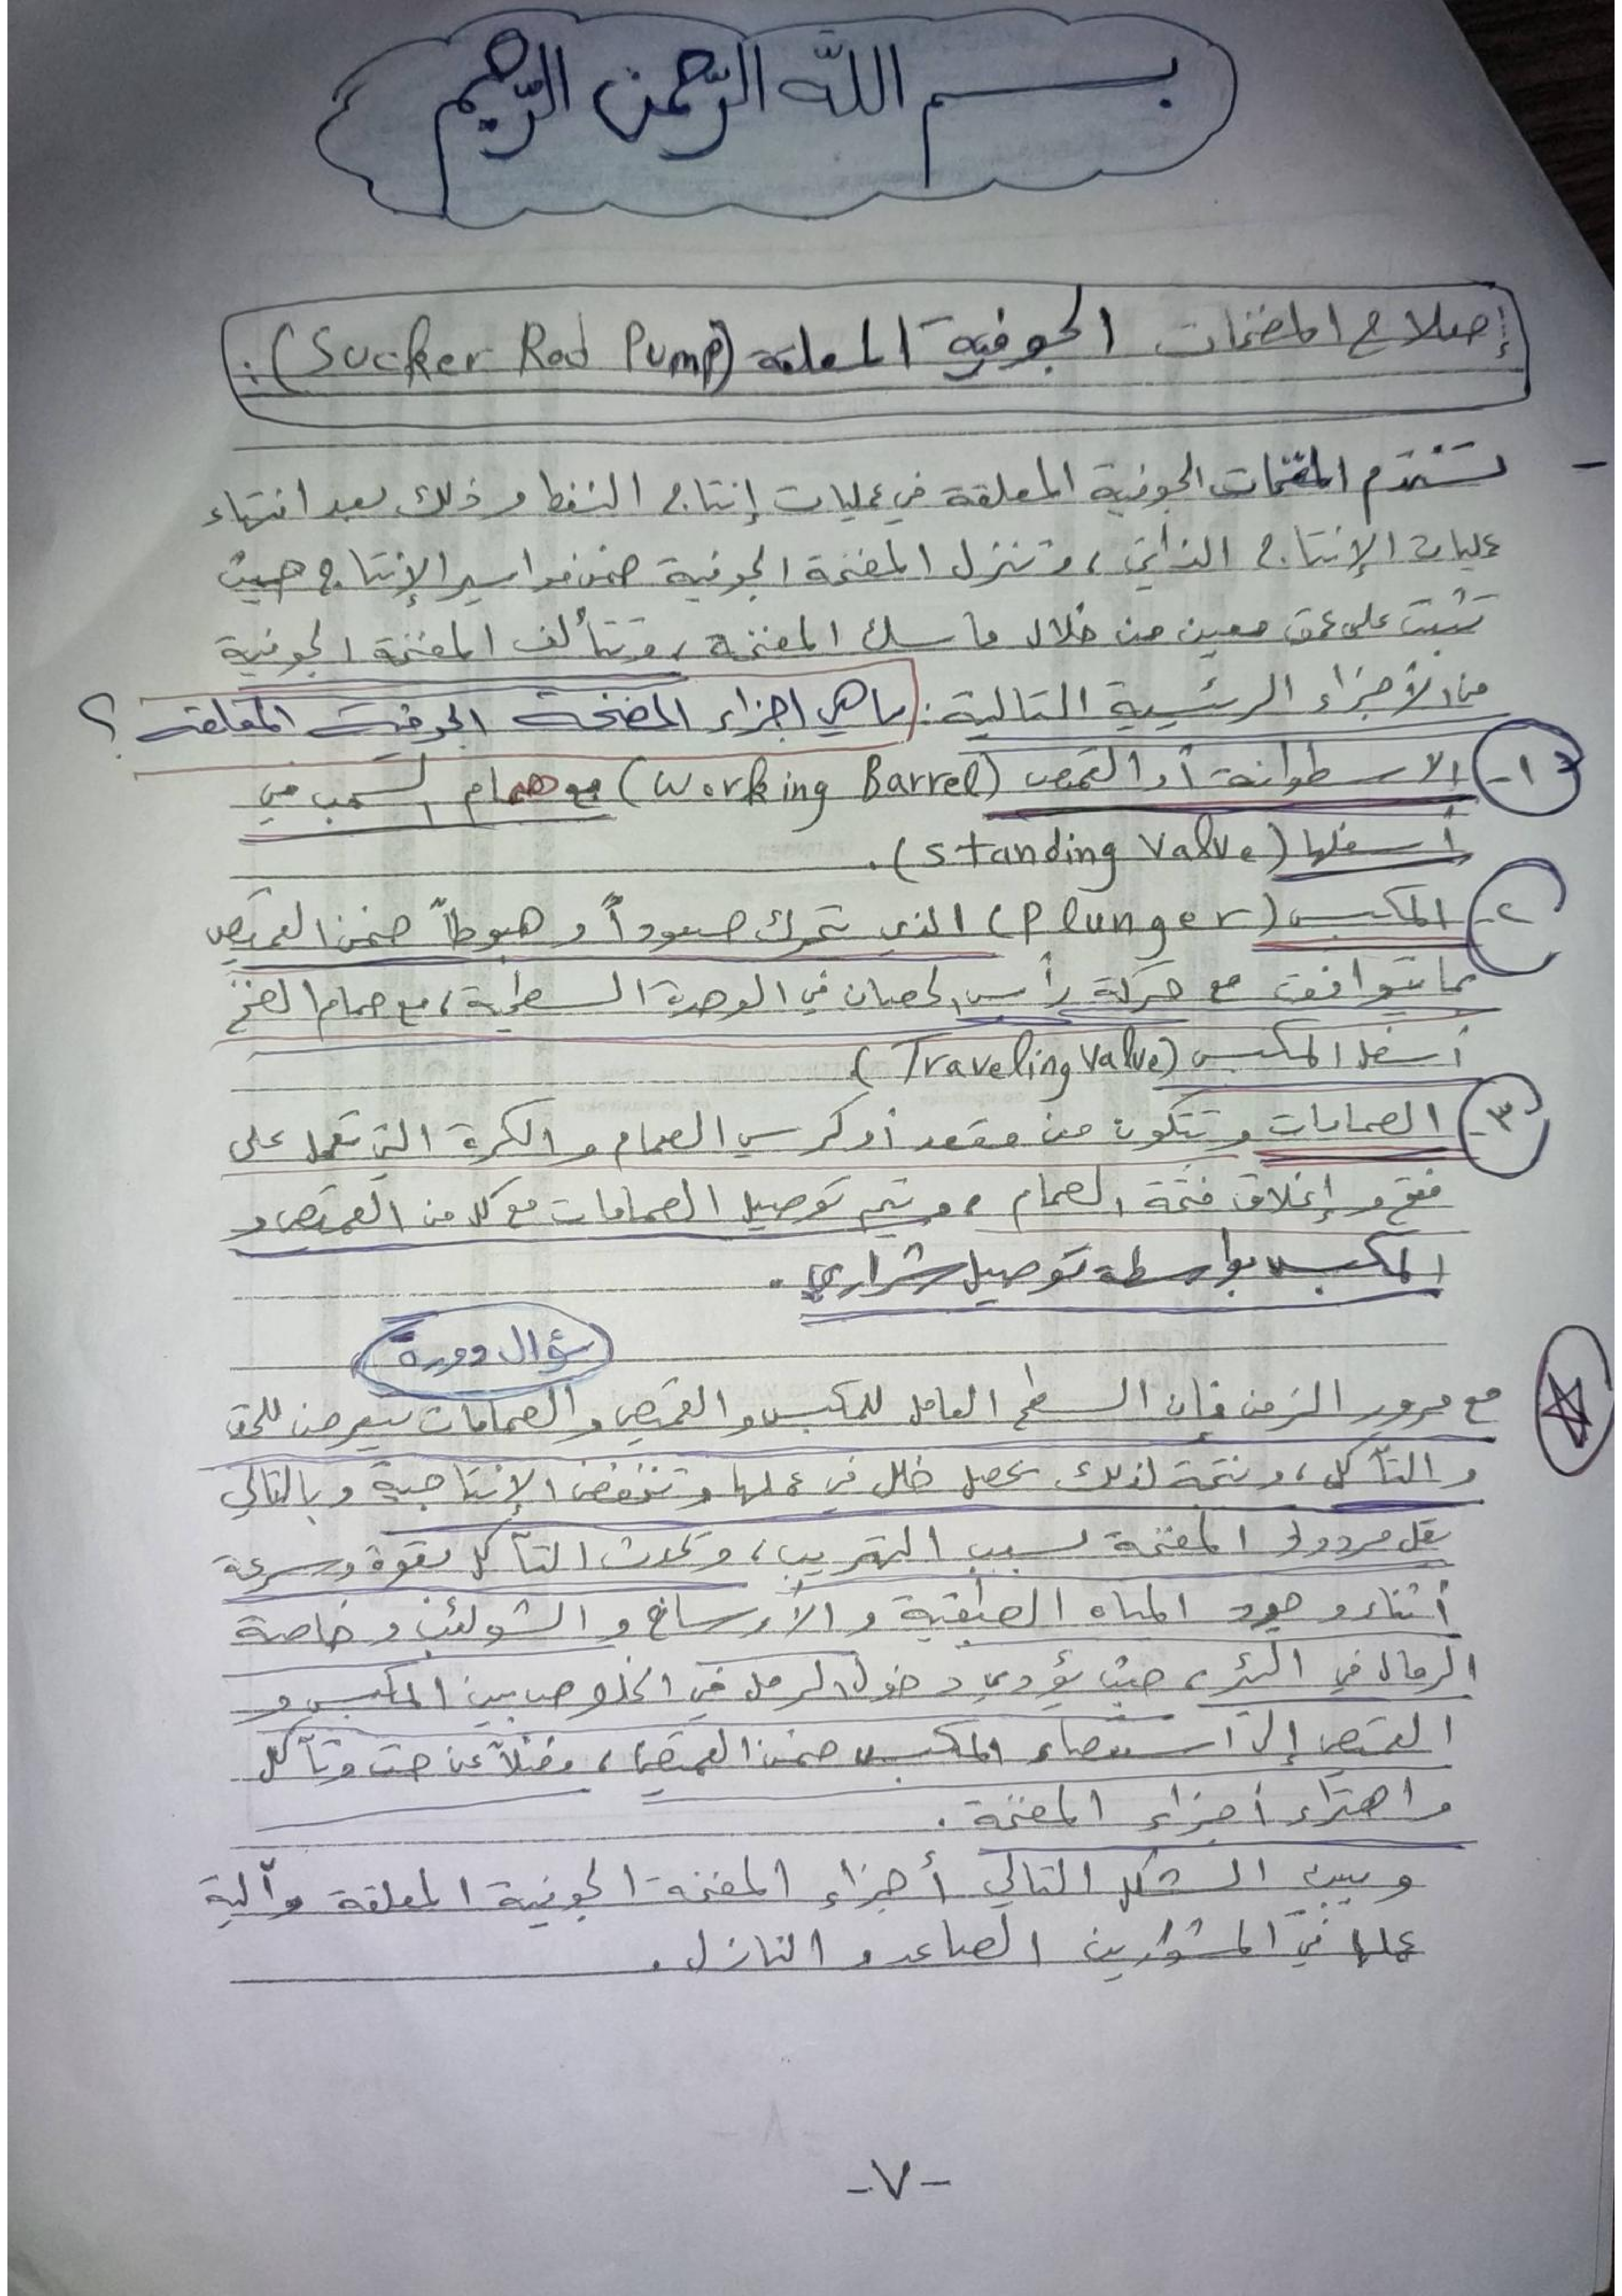 بسم الله الرحمن الرحيم
إصلاح المضخات الجوفية المعلقة (Sucker Rod Pump):
- تستخدم المضخات الجوفية المعلقة في عمليات إنتاج النفط وذلك بعد انتهاء
عمليات الإنتاج الذاتي، وتنزل المضخة الجوفية ضمن مواسير الإنتاج حيث
تثبت على عمق معين من خلال ماسك المضخة، وتتألف المضخة الجوفية
من الأجزاء الرئيسية التالية: ماهي اجزاء المضخة الجوفية المعلقة ؟
١- الاسطوانة أو القميص (Working Barrel) مع صمام السحب في
أسفلها (Standing Valve).
٢- المكبس (Plunger) الذي يتحرك صعوداً و هبوطاً ضمن القميص
بما يتوافق مع حركة رأس الحصان في الوحدة السطحية، مع صمام الضخ
أسفل المكبس (Traveling Valve)
٣- الصمامات وتتكون من مقعد أو كرسي الصمام و الكرة التي تعمل على
فتح و إغلاق فتحة الصمام، ويتم توصيل الصمامات مع كل من القميص و
المكبس بواسطة توصيل شراري.
سؤال دورة
مع مرور الزمن فإن السطح العامل للمكبس و القميص و الصمامات يتعرض للحت
و التآكل، ونتيجة لذلك يحصل خلل في عملها وتنخفض الإنتاجية وبالتالي
يقل مردود المضخة بسبب التهريب، ويحدث التآكل بقوة وسرعة
أثناء وجود المياه الطبقية و الأوساخ و الشوائب وخاصة
الرمال في البئر، حيث يؤدي دخول الرمل في الخلوص بين المكبس و
القميص إلى استعصاء المكبس ضمن القميص، فضلاً عن حت وتآكل
واهتراء أجزاء المضخة.
ويبين الشكل التالي أجزاء المضخة الجوفية المعلقة وآلية
عملها في المشوارين الصاعد و النازل.
-٧-